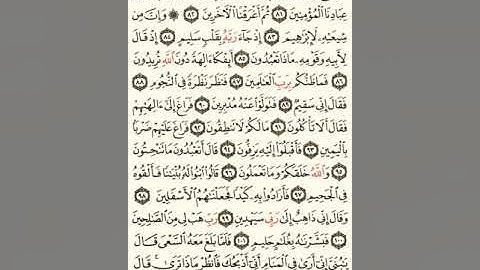 عِبَادِنَا ٱلْمُؤْمِنِينَ ٨١ ثُمَّ أَغْرَقْنَا ٱلْآخَرِينَ ٨٢ ۞ وَإِنَّ مِن
شِيعَتِهِۦ لَإِبْرَٰهِيمَ ٨٣ إِذْ جَآءَ رَبَّهُۥ بِقَلْبٍ سَلِيمٍ ٨٤ إِذْ قَالَ
لِأَبِيهِ وَقَوْمِهِۦ مَاذَا تَعْبُدُونَ ٨٥ أَئِفْكًا ءَالِهَةً دُونَ ٱللَّهِ تُرِيدُونَ
٨٦ فَمَا ظَنُّكُم بِرَبِّ ٱلْعَٰلَمِينَ ٨٧ فَنَظَرَ نَظْرَةً فِى ٱلنُّجُومِ ٨٨
فَقَالَ إِنِّى سَقِيمٌ ٨٩ فَتَوَلَّوْا۟ عَنْهُ مُدْبِرِينَ ٩٠ فَرَاغَ إِلَىٰٓ ءَالِهَتِهِمْ
فَقَالَ أَلَا تَأْكُلُونَ ٩١ مَا لَكُمْ لَا تَنطِقُونَ ٩٢ فَرَاغَ عَلَيْهِمْ ضَرْبًۢا
بِٱلْيَمِينِ ٩٣ فَأَقْبَلُوٓا۟ إِلَيْهِ يَزِفُّونَ ٩٤ قَالَ أَتَعْبُدُونَ مَا تَنْحِتُونَ
٩٥ وَٱللَّهُ خَلَقَكُمْ وَمَا تَعْمَلُونَ ٩٦ قَالُوا۟ ٱبْنُوا۟ لَهُۥ بُنْيَٰنًا فَأَلْقُوهُ
فِى ٱلْجَحِيمِ ٩٧ فَأَرَادُوا۟ بِهِۦ كَيْدًا فَجَعَلْنَٰهُمُ ٱلْأَسْفَلِينَ ٩٨
وَقَالَ إِنِّى ذَاهِبٌ إِلَىٰ رَبِّى سَيَهْدِينِ ٩٩ رَبِّ هَبْ لِى مِنَ ٱلصَّٰلِحِينَ
١٠٠ فَبَشَّرْنَٰهُ بِغُلَٰمٍ حَلِيمٍ ١٠١ فَلَمَّا بَلَغَ مَعَهُ ٱلسَّعْىَ قَالَ
يَٰبُنَىَّ إِنِّىٓ أَرَىٰ فِى ٱلْمَنَامِ أَنِّىٓ أَذْبَحُكَ فَٱنظُرْ مَاذَا تَرَىٰ ۚ قَالَ